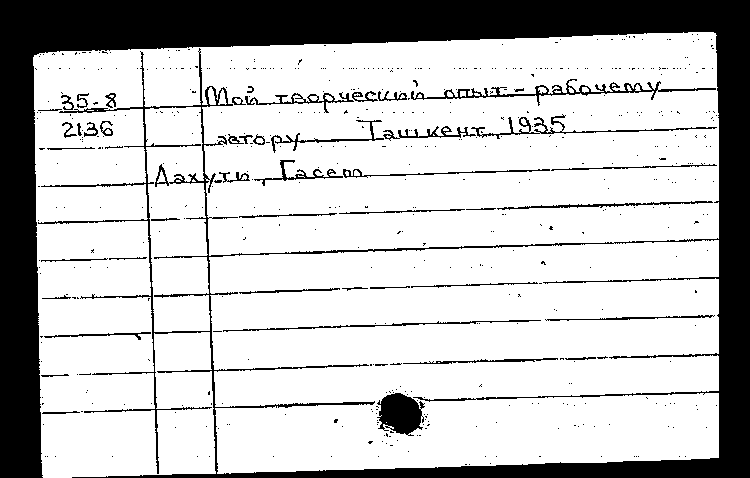 35-8 Мой творческий опыт - рабочему
2136 автору. Ташкент, 1935
Лахути, Гасем